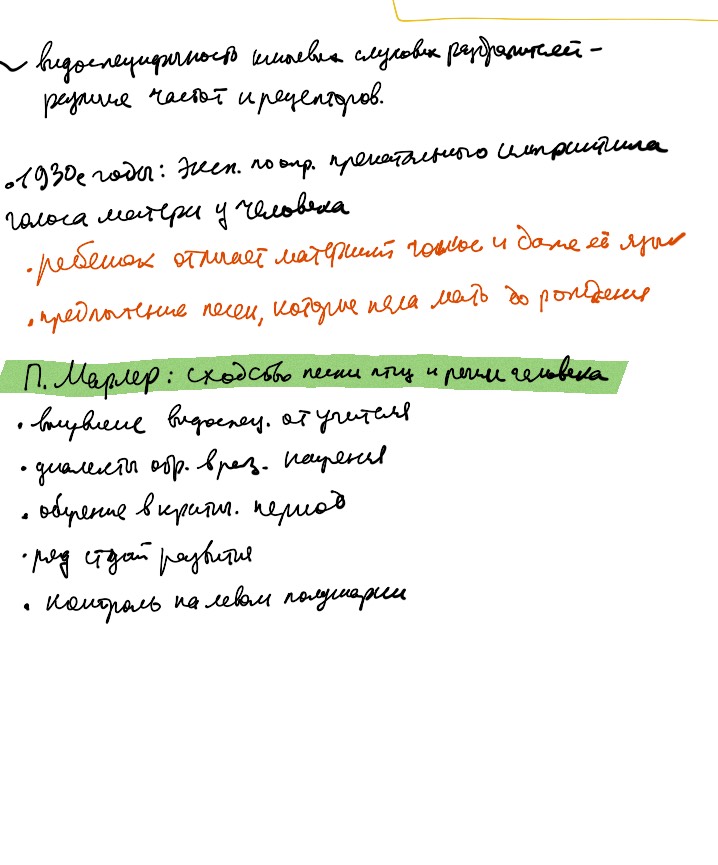 видоспецифичность ключевых слуховых раздражителей -
различие частот и рецепторов.
• 1930е годы: Эксп. по опр. пренатального импринтинга
голоса матери у человека
• ребенок отличает материнский голос и даже её язык
• предпочтение песен, которые пела мать до рождения
П. Марлер: сходство песни птиц и речи человека
• выучивание видоспец. от учителя
• диалекты обр. в рез. научения
• обучение в критич. период
• ряд стадий развития
• контроль на левом полушарии